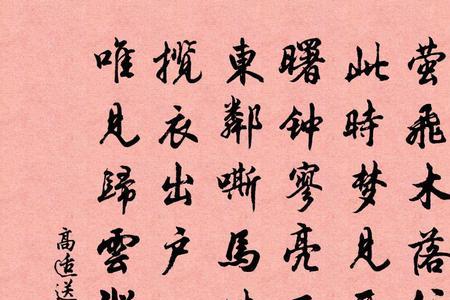 萤飛木落
此時梦見
曙钟寥亮
東鄰嘶馬
揽衣出户
唯見歸雲
高适送